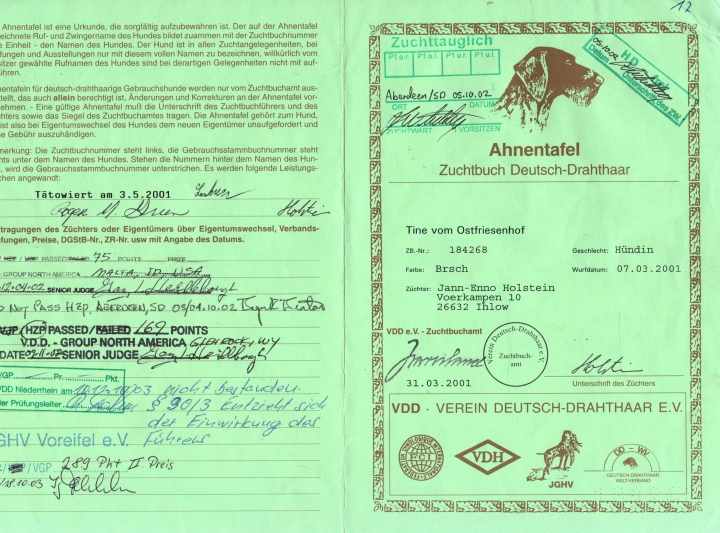 12
Ahnentafel ist eine Urkunde, die sorgfältig aufzubewahren ist. Der auf der Ahnentafel
eichnete Ruf- und Zwingername des Hundes bildet zusammen mit der Zuchtbuchnummer
e Einheit - den Namen des Hundes. Der Hund ist in allen Zuchtangelegenheiten, bei
fungen und Ausstellungen nur mit diesem vollen Namen zu bezeichnen, willkürlich vom
sitzer gewählte Rufnamen des Hundes sind bei derartigen Gelegenheiten nicht mit auf-
ühren.
nentafeln für deutsch-drahthaarige Gebrauchshunde werden nur vom Zuchtbuchamt aus-
tellt, das auch allein berechtigt ist, Änderungen und Korrekturen an der Ahnentafel vor-
ehmen - Eine gültige Ahnentafel muß die Unterschrift des Zuchtbuchführers und des
hters sowie das Siegel des Zuchtbuchamtes tragen. Die Ahnentafel gehört zum Hund,
ist also bei Eigentumswechsel des Hundes dem neuen Eigentümer unaufgefordert und
e Gebühr auszuhändigen.
merkung: Die Zuchtbuchnummer steht links, die Gebrauchsstammbuchnummer steht
hts unter dem Namen des Hundes. Stehen die Nummern hinter dem Namen des Hun-
, wird die Gebrauchsstammbuchnummer unterstrichen. Es werden folgende Leistungs-
chen angewandt:
Tätowiert am 3.5.2001
Roger M Green Holstein
tragungen des Züchters oder Eigentümers über Eigentumswechsel, Verbands-
fungen, Preise, DGStB-Nr., ZR-Nr. usw mit Angabe des Datums.
PASSED 75 POINTS
GROUP NORTH AMERICA MALTA, ID USA
12-04-02 SENIOR JUDGE
D NOT PASS HZP, ABERDEEN, SD 03/04.10.02
VJP (HZP) PASSED/FAILED 169 POINTS
V.D.D. - GROUP NORTH AMERICA GLENROCK, WY
DATE SENIOR JUDGE
VGP Pr. Pkt.
VDD Niederrhein am 03 nicht bestanden
der Prüfungsleiter § 90/3 Entzieht sich
der Einwirkung des
Führers
JGHV Voreifel e.V.
/VGP 289 Pkt II Preis
Zuchttauglich
Aberdeen/SD 05.10.02
ORT DATUM
ZUCHTWART VORSITZEN
05.10.02
HD
Datum
Ahnentafel
Zuchtbuch Deutsch-Drahthaar
Tine vom Ostfriesenhof
ZB.-Nr.: 184268 Geschlecht: Hündin
Farbe: Brsch Wurfdatum: 07.03.2001
Züchter: Jann-Enno Holstein
Voerkampen 10
26632 Ihlow
VDD e.V. - Zuchtbuchamt
Verein Deutsch-Drahthaar e.V.
Zuchtbuch-
amt
Holstein
31.03.2001 Unterschrift des Züchters
VDD · VEREIN DEUTSCH-DRAHTHAAR E.V.
FCI
VDH
JGHV
DD - WV
DEUTSCH-DRAHTHAAR
WELT-VERBAND